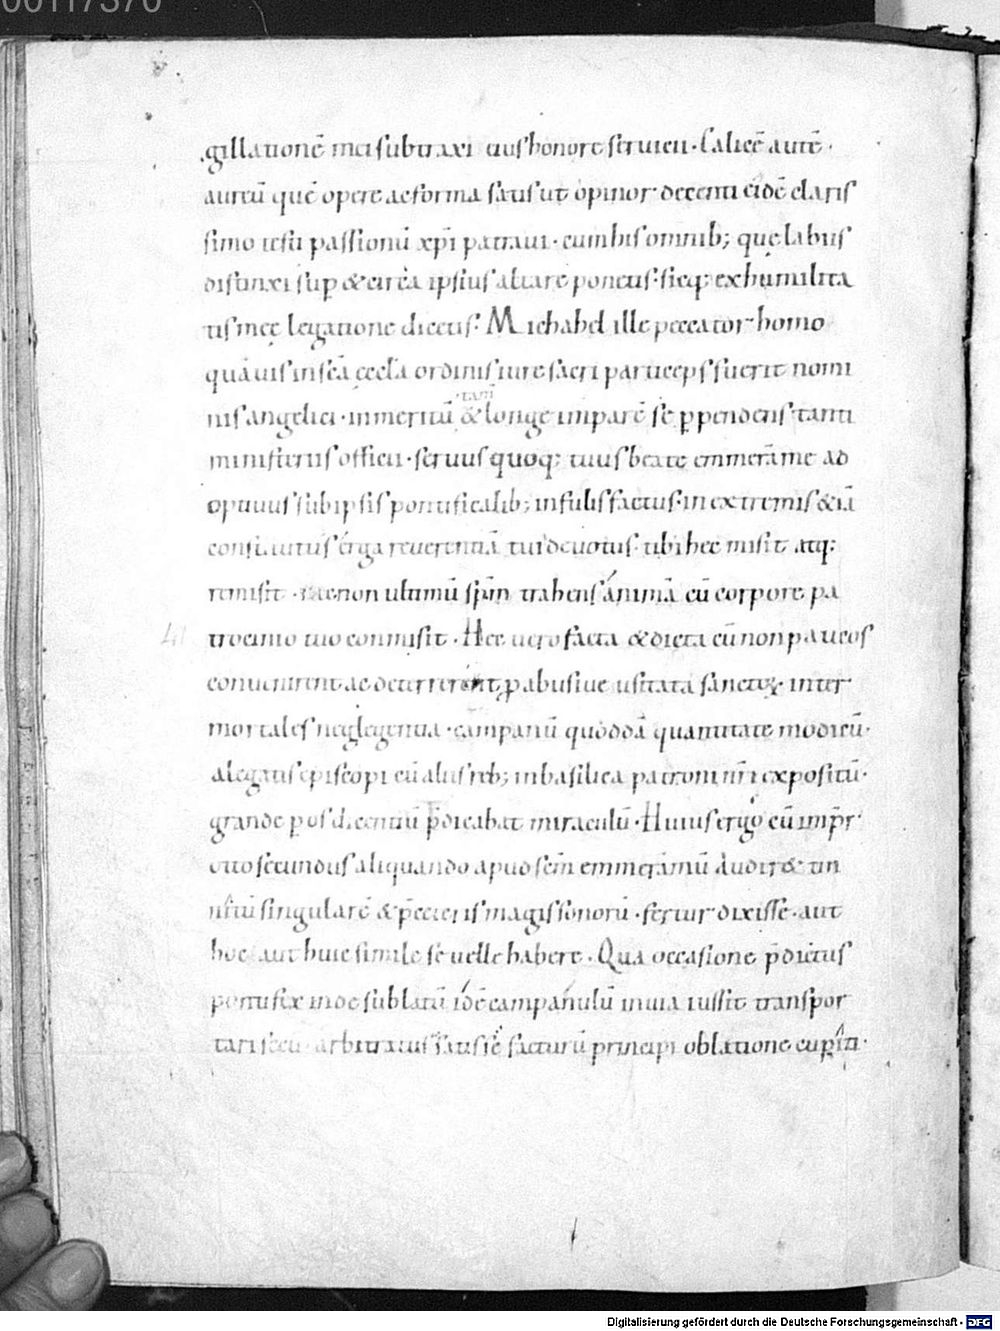 00117376
gillationē mei subtraxi eius honore serviui. Calicē autē.
aureū quē opere ac forma satis ut opinor decenti eidē claris
simo iesu passionū xp̄i patraui. cum his omnib; quę labiis
distinxi sup & circa ipsius altare ponetis. sicq; ex humilita
tis meę legatione dicetis. Michahel ille peccator homo
quāuis in scā ęcclā ordinis iure sacri particeps fuerit nomi
nis angelici. inmeritū tam & longe imparē se ꝑpendens tanti
ministeriis officii. seruus quoq; tuus beate emmerāme ad
optiuus sub ipsis pontificalib; infulis factus. in extremis & iā
constitutus erga reuerentiā tui deuotus. tibi hec misit atq;
remisit. necnon ultimū sp̄m trahens animā cū corpore pa
41 trocinio tuo conmisit. Hec uero facta & dicta cū non paucos
conuenirent ac detererent, ꝓ abusiue usitata sanctoꝝ inter
mortales neglegentia. campanū quoddā quantitate modicū.
a legatis episcopi cū aliis reb; in basilica patroni nr̄i expositū.
grande ꝑ os dicentiū p̄dicabat miraculū. Huius ergo cū imp̄r
otto secundus aliquando apud scm̄ emmerāmū audiret tin
nitū singularē & p̄ceteris magis sonorū. fertur dixisse. aut
hoc aut huic simile se uelle habere. Qua occasione p̄dictus
pontifex inde sublatū idē campanulū in uia iussit transpor
tari secū. arbitratus satis se facturū principi oblatione cupīti.
Digitalisierung gefördert durch die Deutsche Forschungsgemeinschaft - DFG